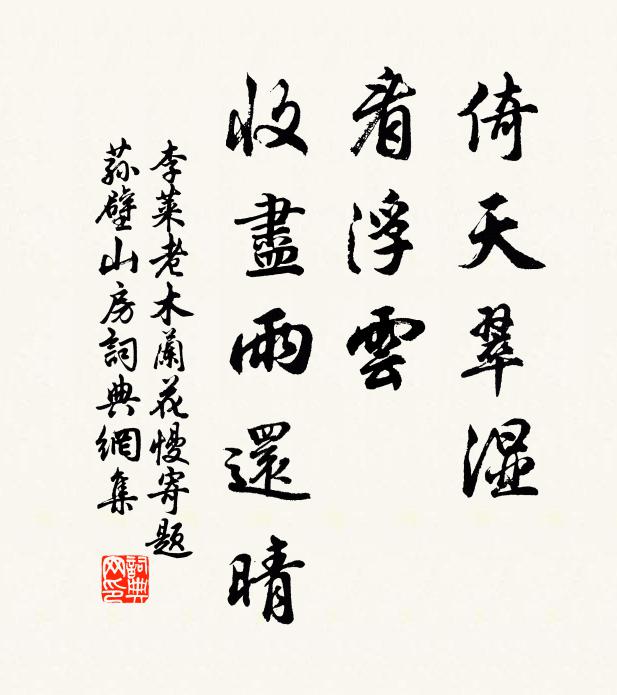 倚天翠濕
看浮雲
收盡雨還晴
李萊老木蘭花慢寄題
蓀壁山房詞典網集
詞典網印